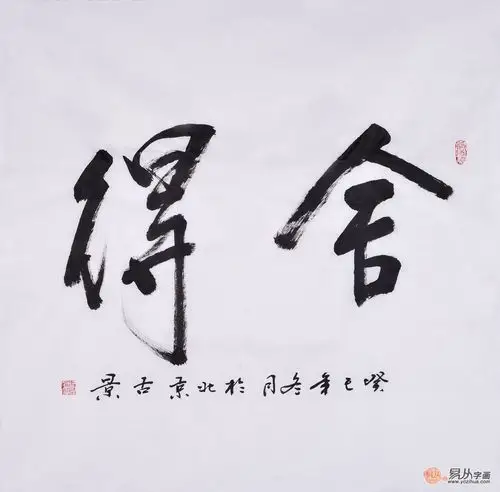 舍得
癸巳年冬月於北京古景
易从字画
www.yczihua.com